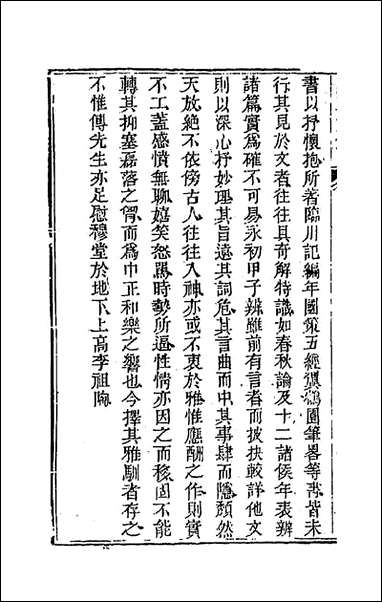 書以抒懷抱所著臨川記編年國策五經翼鷁圖筆畧等書皆未
行其見於文者往往具奇解特識如春秋論及十二諸侯年表辨
諸篇實爲確不可易永初甲子辨雖前有言者而披抉較詳他文
則以深心抒妙理其旨遠其詞危其言曲而中其事肆而隱頽然
天放絕不依傍古人往往入神亦或不衷於雅惟應酬之作則實
不工蓋感憤無聊嬉笑怒罵時勢所逼性情亦因之而移固不能
轉其抑塞磊落之胷而爲中正和樂之響也今擇其雅馴者存之
不惟傳先生亦足慰穆堂於地下上高李祖陶